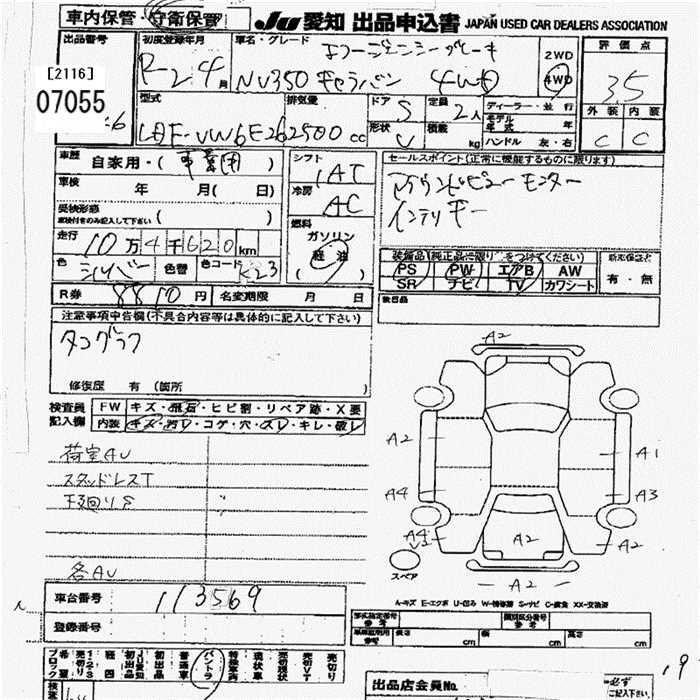 車内保管・守衛保管
JU 愛知 出品申込書 JAPAN USED CAR DEALERS ASSOCIATION
出品番号
[2116]
07055
初度登録年月
R2 4月
車名・グレード
NV350 キャラバン 4WD
2WD
4WD
評価点
3.5
外装 内装
C C
型式
LDF-VW6E26
排気量
2500cc
ドア 5
形状 V
定員 2人
積載 kg
ディーラー・並行
モデル年式 年
ハンドル 左・右
車歴 自家用・(事業用)
車検 年 月(日)
受検形態
車検付きのみ記入して下さい ( )
走行 10万4千620km
色 シルバー 色替 色コード K23
シフト
IAT
冷房
AC
燃料
ガソリン
軽油
( )
セールスポイント(正常に機能するものに限ります)
アラウンドビューモニター
インテリキー
装備品(純正品に限り○をつけてください)
PS PW エアB AW
SR ナビ TV カワシート
新車保証書
有・無
後日品
R券 8810円 名変期限 月 日
注意事項申告欄(不具合内容等は具体的に記入して下さい)
タコグラフ
修復歴 有(箇所
検査員記入欄
FW キズ・飛石・ヒビ割・リペア跡・X要
内装 キズ・汚レ・コゲ・穴・スレ・キレ・破レ
荷室AU
スタッドレスT
下廻りS
各AU
A2
A2
A1
A4
A3
A4
A2
A2
A2
スペア
A-キズ E-エクボ U-凹み W-補修跡 S-サビ C-腐食 XX-交換済
車台番号 113569
登録番号
型式指定番号 参考
類別区分番号 参考
長さ cm 幅 cm 高さ cm
出品店会員No.
必ず
ご記入下さい。